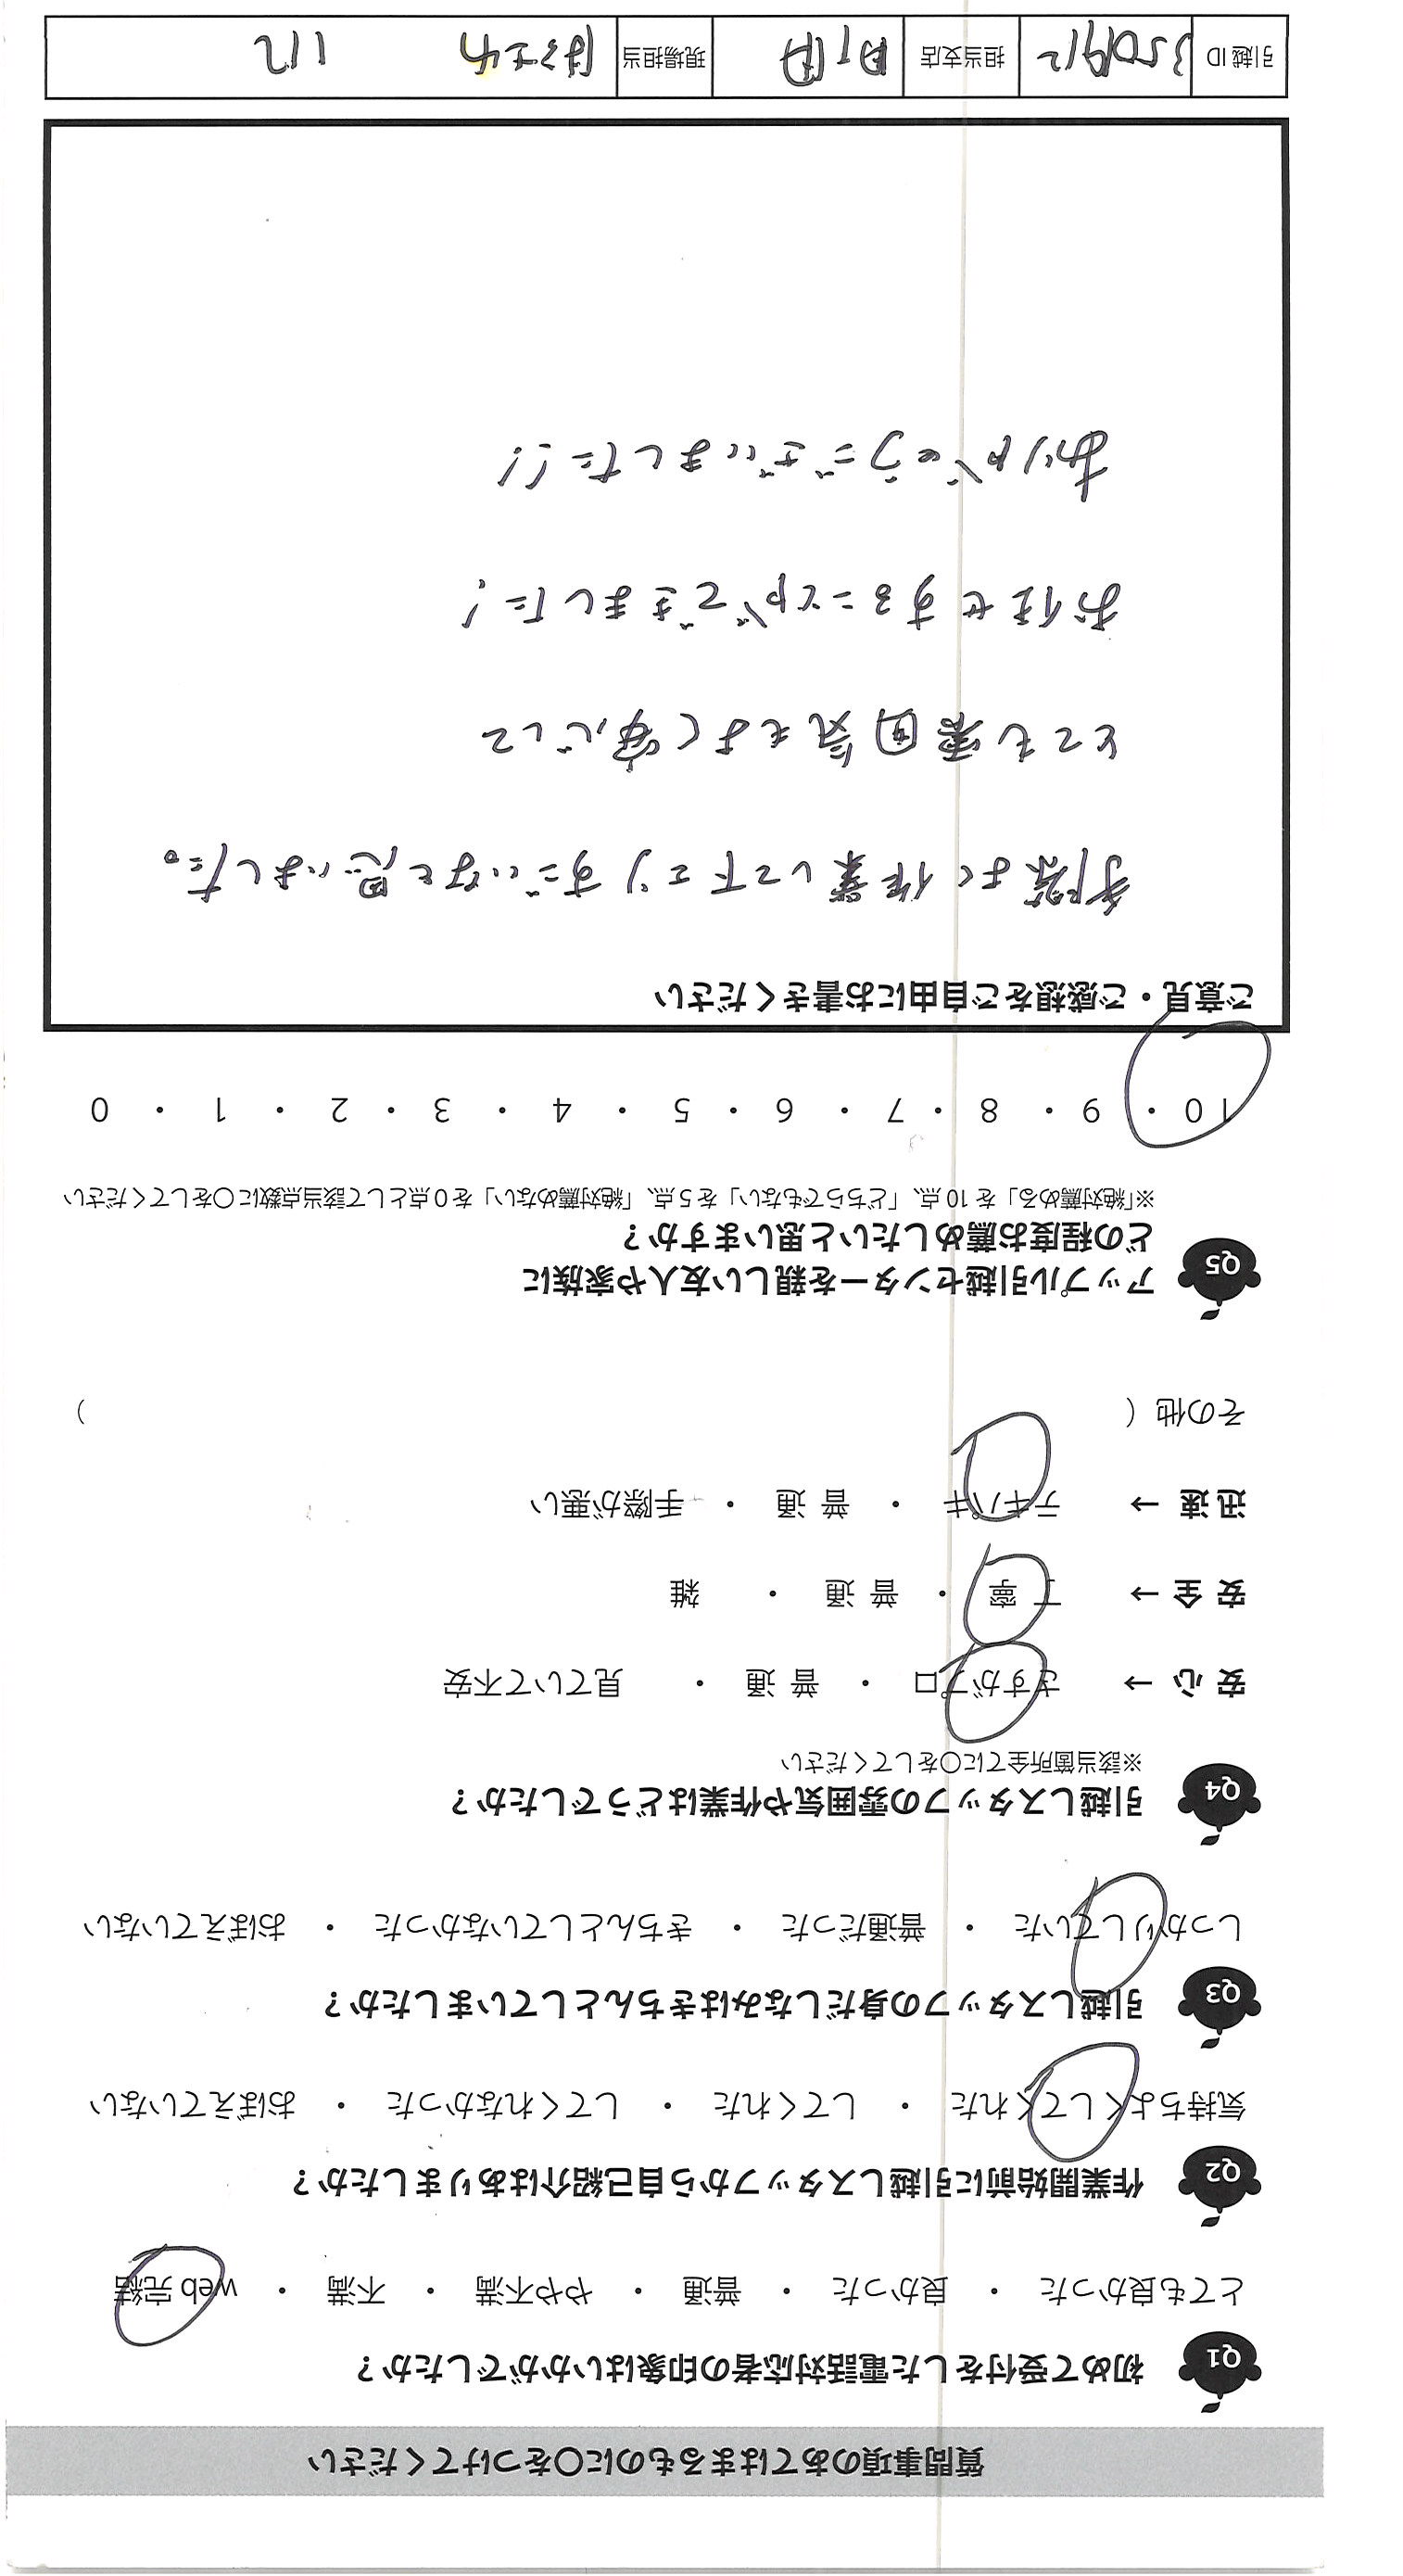 質問事項のあてはまるものに〇をつけてください
Q1 初めて受付をした電話対応者の印象はいかがでしたか？
とても良かった ・ 良かった ・ 普通 ・ やや不満 ・ 不満 ・ web 完結
Q2 作業開始前に引越しスタッフから自己紹介はありましたか？
気持ちよくしてくれた ・ してくれた ・ してくれなかった ・ おぼえていない
Q3 引越しスタッフの身だしなみはきちんとしていましたか？
しっかりしていた ・ 普通だった ・ きちんとしていなかった ・ おぼえていない
Q4 引越しスタッフの雰囲気や作業はどうでしたか？
※該当箇所全てに〇をしてください
安心 → さすがプロ ・ 普通 ・ 見ていて不安
安全 → 丁寧 ・ 普通 ・ 雑
迅速 → テキパキ ・ 普通 ・ 手際が悪い
その他（ ）
Q5 アップル引越センターを親しい友人や家族に
どの程度お薦めしたいと思いますか？
※「絶対薦める」を 10 点、「どちらでもない」を 5 点、「絶対薦めない」を 0 点として該当点数に〇をしてください
10 ・ 9 ・ 8 ・ 7 ・ 6 ・ 5 ・ 4 ・ 3 ・ 2 ・ 1 ・ 0
ご意見・ご感想をご自由にお書きください
手際よく作業して下さりすごいなと思いました。
とても雰囲気もよく安心して
お任せすることができました！
ありがとうございました！！
引越 ID 3501912 担当支店 現場担当